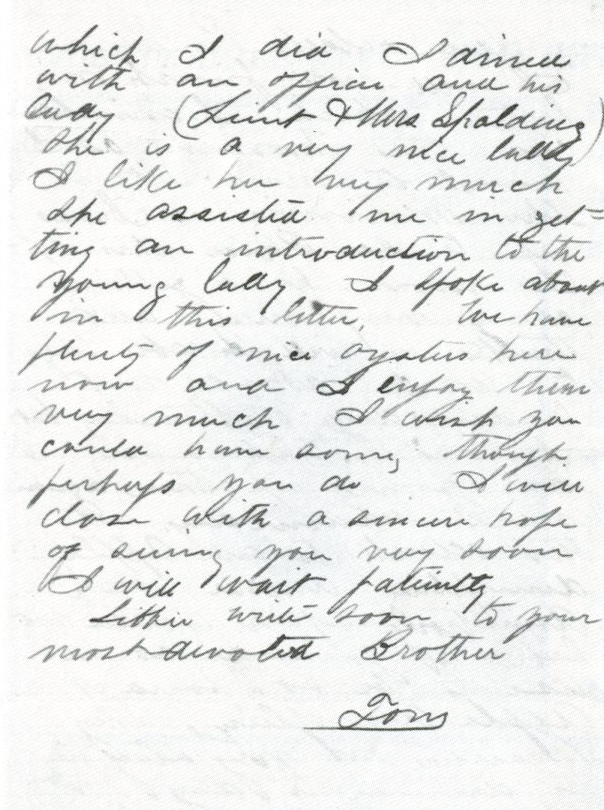 which I did I dined
with an officer and his
lady (Lieut & Mrs Spalding)
She is a very nice lady
I like her very much
she assisted me in get=
ting an introduction to the
young lady I spoke about
in this letter. We have
plenty of nice oysters here
now and I enjoy them
very much I wish you
could have some, though
perhaps you do I will
close with a sincere hope
of seeing you very soon
I will wait patiently
Sister write soon to your
most devoted Brother
Tom